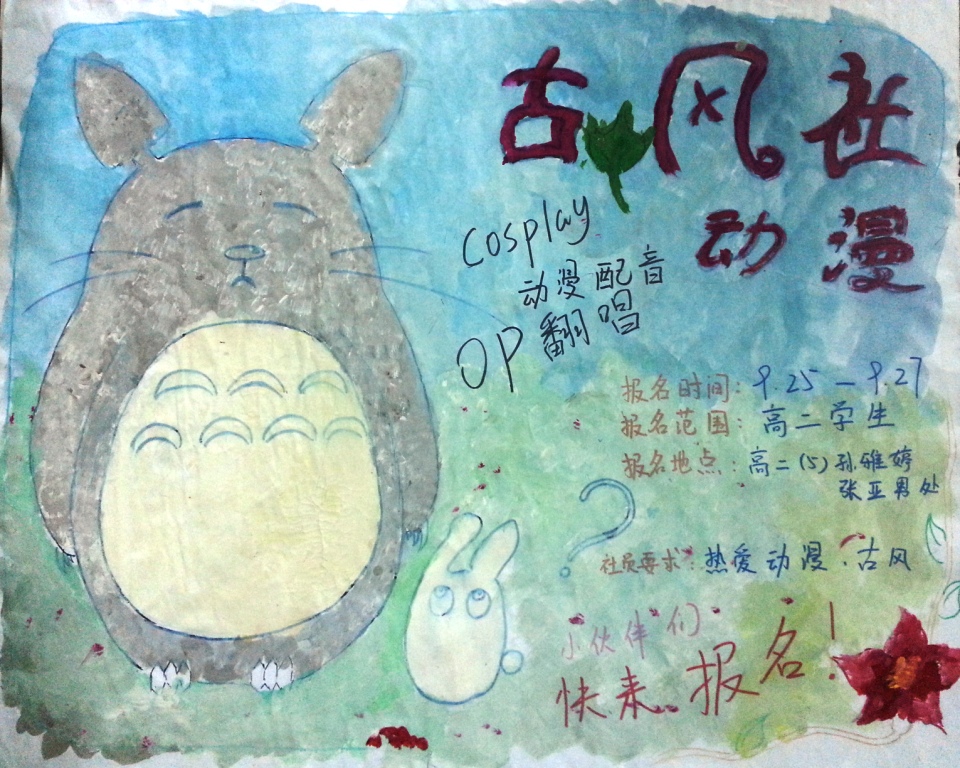 古风社
动漫
Cosplay
动漫配音
OP翻唱
报名时间：9.25—9.27
报名范围：高二学生
报名地点：高二（5）孙雅婷
张亚男处
?
社员要求：热爱动漫·古风
小伙伴们
快来报名！